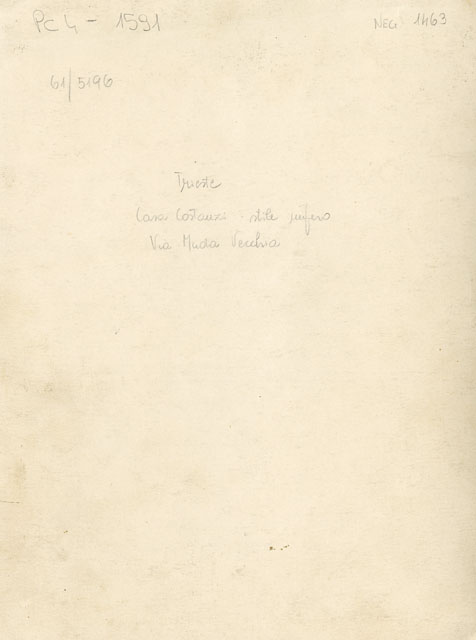 Pc 4 - 1591
NEG 1463
61/5196
Trieste
Casa Costanzi: stile impero
Via Muda Vecchia